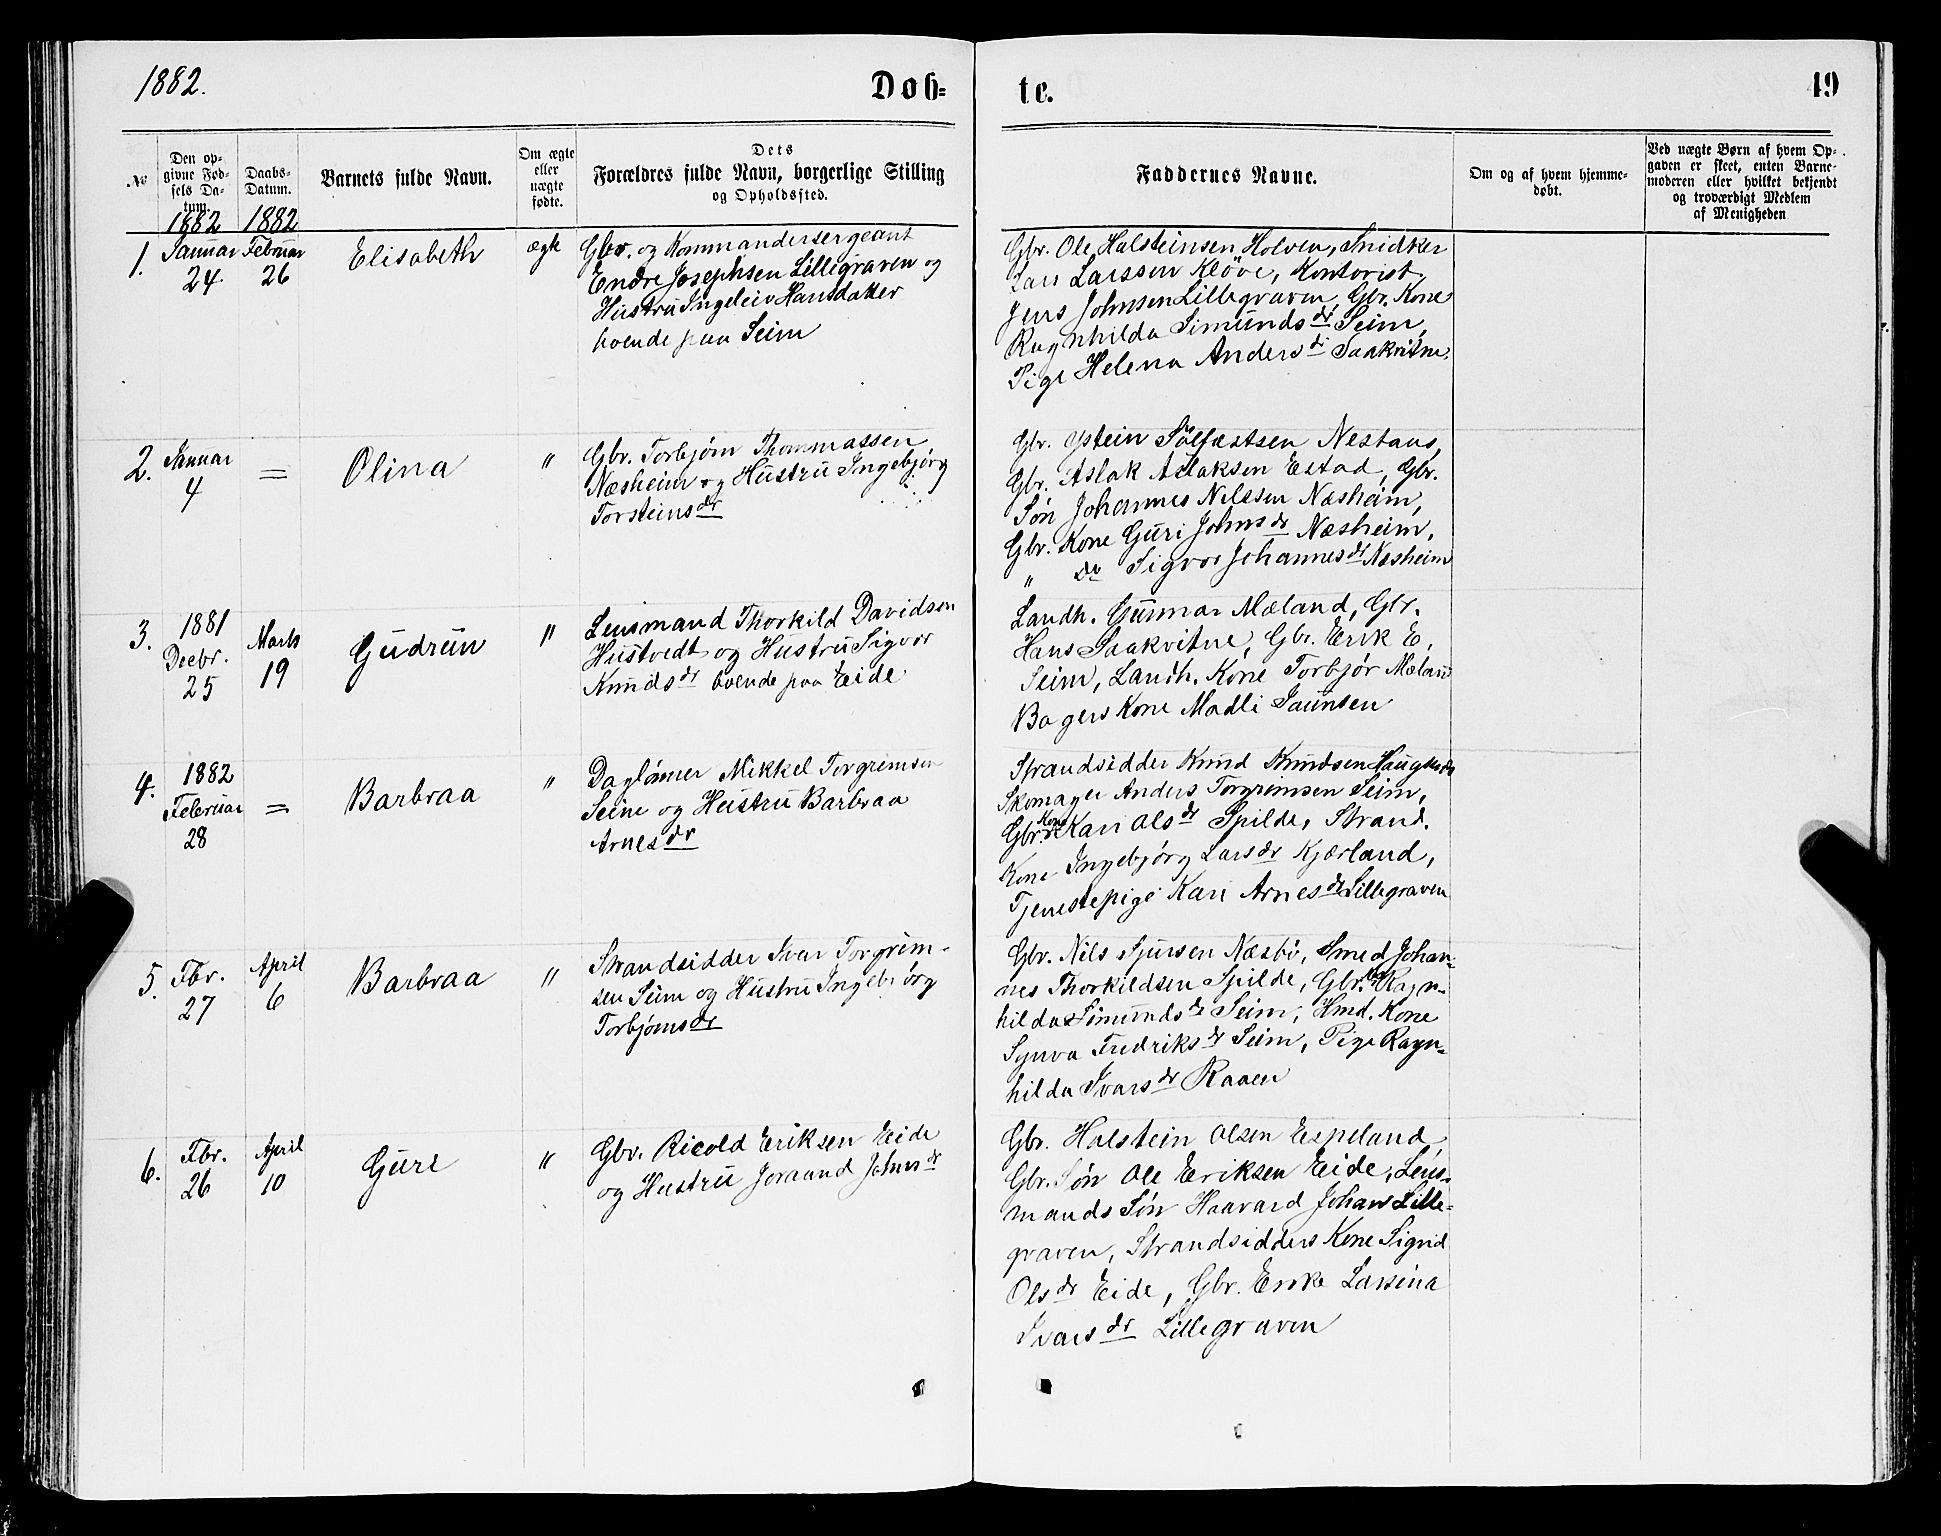 1882.
Døb=
te.
49
No
Den op-
givne Fød-
sels Da-
tum.
1882
Daabs-
Datum.
1882
Barnets fulde Navn.
Om ægte
eller
uægte
fødte.
Dets
Forældres fulde Navn, borgerlige Stilling
og Opholdssted.
Faddernes Navne.
Om og af hvem hjemme-
døbt.
Ved uægte Børn af hvem Op-
gaven er skeet, enten Barne-
moderen eller hvilket bekjendt
og troværdigt Medlem
af Menigheden
1.
Januar
24
Februar
26
Elisabeth
ægte
Gbr. og Kommandersergeant
Endre Josephsen Lillegraven og
Hustru Ingeleiv Hansdatter
boende paa Seim
Gbr. Ole Halsteinsen Holven, Snidker
Lars Larssen Kløve, Kontorist
Jens Johnsen Lillegraven, Gbr. Kone
Ragnhilda Simundsdr Seim,
Pige Helena Andersdr Saakvitne.
2.
Januar
4
=
Olina
"
Gbr. Torbjørn Thommassen
Næsheim og Hustru Ingebjørg
Torsteinsdr
Gbr. Ystein Sølfæstsen Nestaus,
Gbr. Aslak Aslaksen Estad, Gbr.
Søn Johannes Nilssen Næsheim,
Gbr. Kone Guri Johnsdr Næsheim,
" do Sigvor Johannesdr Næsheim
3.
1881
Decbr.
25
Marts
19
Gudrun
"
Lensmand Thorkild Davidsen
Hustvedt og Hustru Sigvor
Knudsdr boende paa Eide
Landh. Gunnar Mæland, Gbr.
Hans Saakvitne, Gbr. Erik E.
Seim, Landh. Kone Torbjør Mæland
Bagers Kone Madli Jaunsen
4.
1882
Februar
28
=
Barbraa
"
Dagløner Mikkel Torgrimsen
Seim og Hustru Barbraa
Arnesdr
Strandsidder Knud Knudsen
Skomager Anders Torgrimsen Seim,
Gbr. Kone Kari Olsdr Spilde, Strand.
Kone Ingebjørg Larsdr Kjærland,
Tjenestepige Kari Arnesdr Lillegraven
5.
Fbr.
27
April
6
Barbraa
"
Strandsidder Ivar Torgrim-
sen Seim og Hustru Ingebjørg
Torbjørnsdr
Gbr. Nils Sjursen Næsbø, Smed Johan-
nes Thorkildsen Spilde, Gbr. Ragn-
hilda Simundsdr Seim, Hmd. Kone
Synva Fredriksdr Seim, Pige Ragn-
hilda Ivarsdr Raaen
6.
Fbr.
26
April
10
Guri
"
Gbr. Ricold Eriksen Eide
og Hustru Joraand Johnsdr
Gbr. Halstein Olsen Espeland,
Gbr. Søn Ole Eriksen Eide, Lens-
mands Søn Haavard Johans Lille-
graven, Strandsidders Kone Sigrid
Olsdr Eide, Gbr. Enke Larsina
Ivarsdr Lillegraven